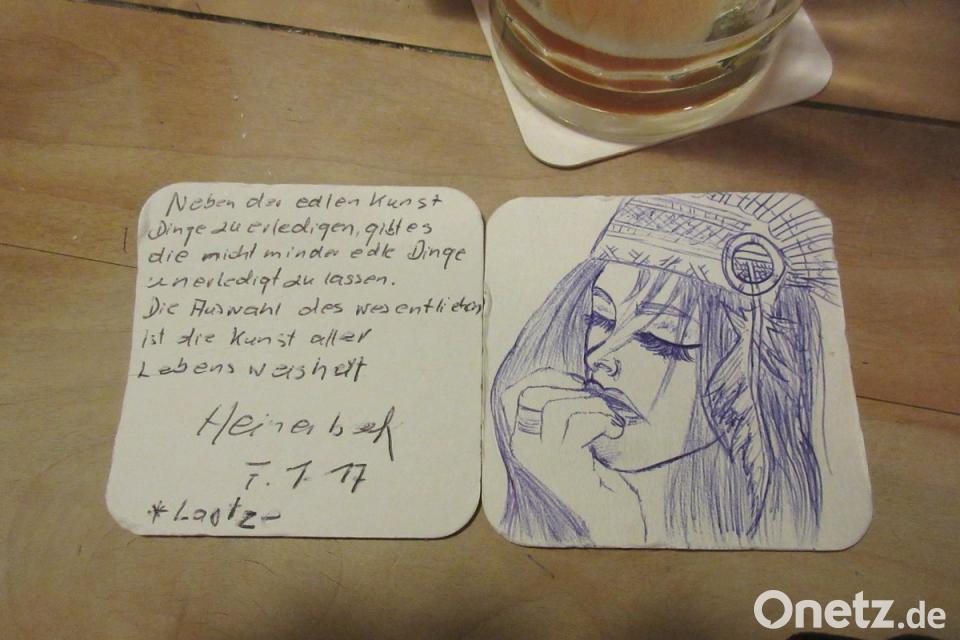 Neben der edlen Kunst
Dinge zu erledigen, gibt es
die nicht minder edle Dinge
unerledigt zu lassen.
Die Auswahl des wesentlichen
ist die Kunst aller
Lebensweisheit
7.1.17
*Laotze
Onetz.de